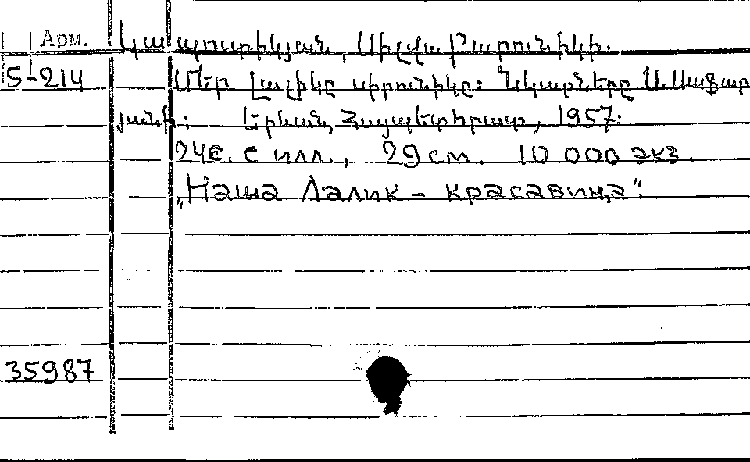 Арм. Կապուտիկյան, Սիլվա Բարունիկի.
5-214 Մեր Լալիկը սիրունիկը: Նկարները Ա.
յանի: Երևան, Հայպետհրատ, 1957.
24с. с илл., 29 см. 10 000 экз.
„Наша Лалик - красавица".
35987